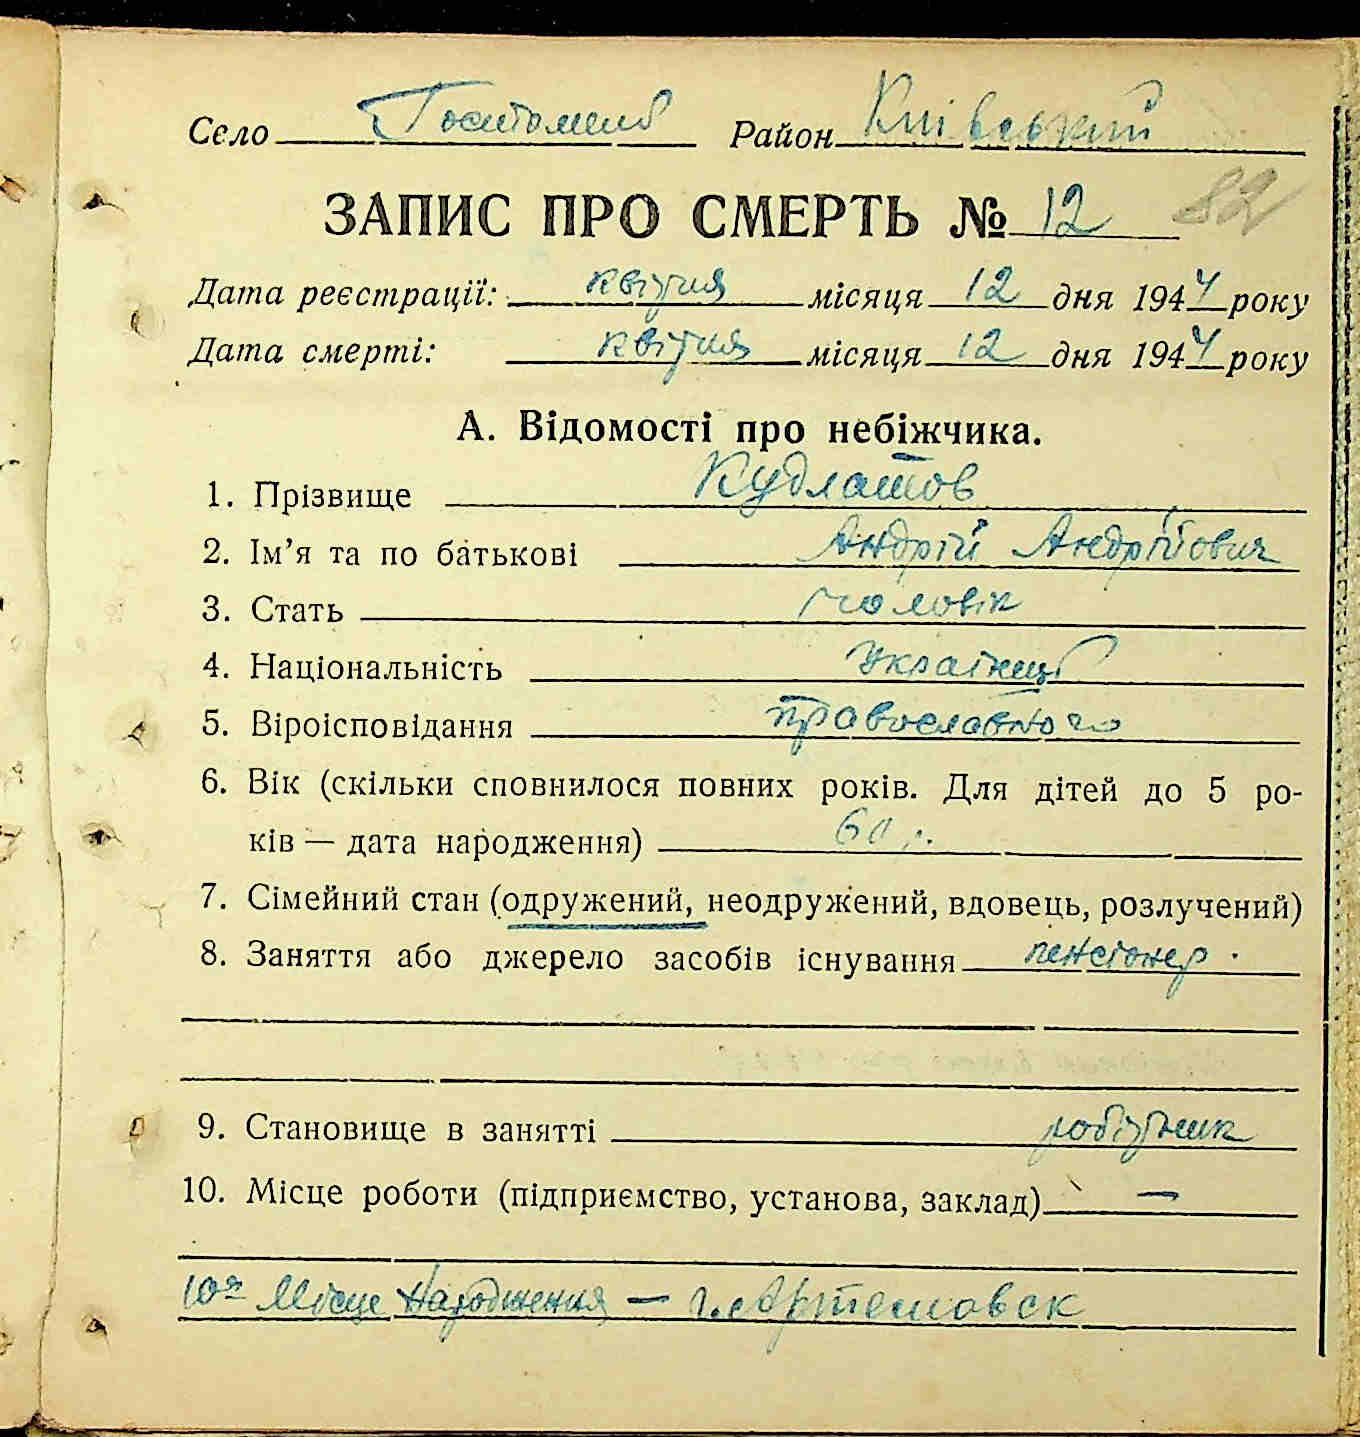 Село Гостомель Район Київський
ЗАПИС ПРО СМЕРТЬ № 12 82
Дата реєстрації: квітня місяця 12 дня 1944 року
Дата смерті: квітня місяця 12 дня 1944 року
А. Відомості про небіжчика.
1. Прізвище Кудлатов
2. Ім’я та по батькові Андрій Андрійович
3. Стать чоловік
4. Національність Українець
5. Віроісповідання православного
6. Вік (скільки сповнилося повних років. Для дітей до 5 ро-
ків — дата народження) 60 р.
7. Сімейний стан (одружений, неодружений, вдовець, розлучений)
8. Заняття або джерело засобів існування пенсіонер.
9. Становище в занятті робітник
10. Місце роботи (підприємство, установа, заклад) —
10а Місце Народження — г. Артемовск